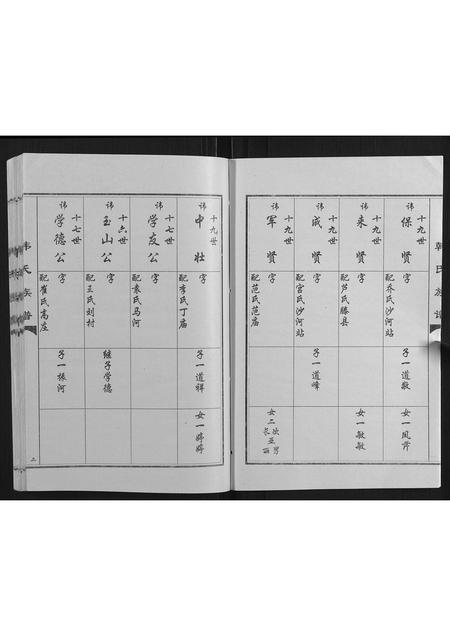 韩氏族谱
十九世
讳 保贤 字
配乔氏沙河站
子一道敬
女一凤芹
十九世
讳 来贤 字
配芦氏滕县
女一敏敏
十九世
讳 成贤 字
配宫氏沙河站
子一道峰
十九世
讳 军贤 字
配范氏范庙
女二长亚丽
次 男
十九世
讳 中壮 字
配李氏丁庙
子一道祥
女一婷婷
十七世
讳 学友公 字
配秦氏马河
十六世
讳 玉山公 字
配王氏刘村
继子学德
十七世
讳 学德公 字
配崔氏高庄
子一振河
韩氏族谱
二